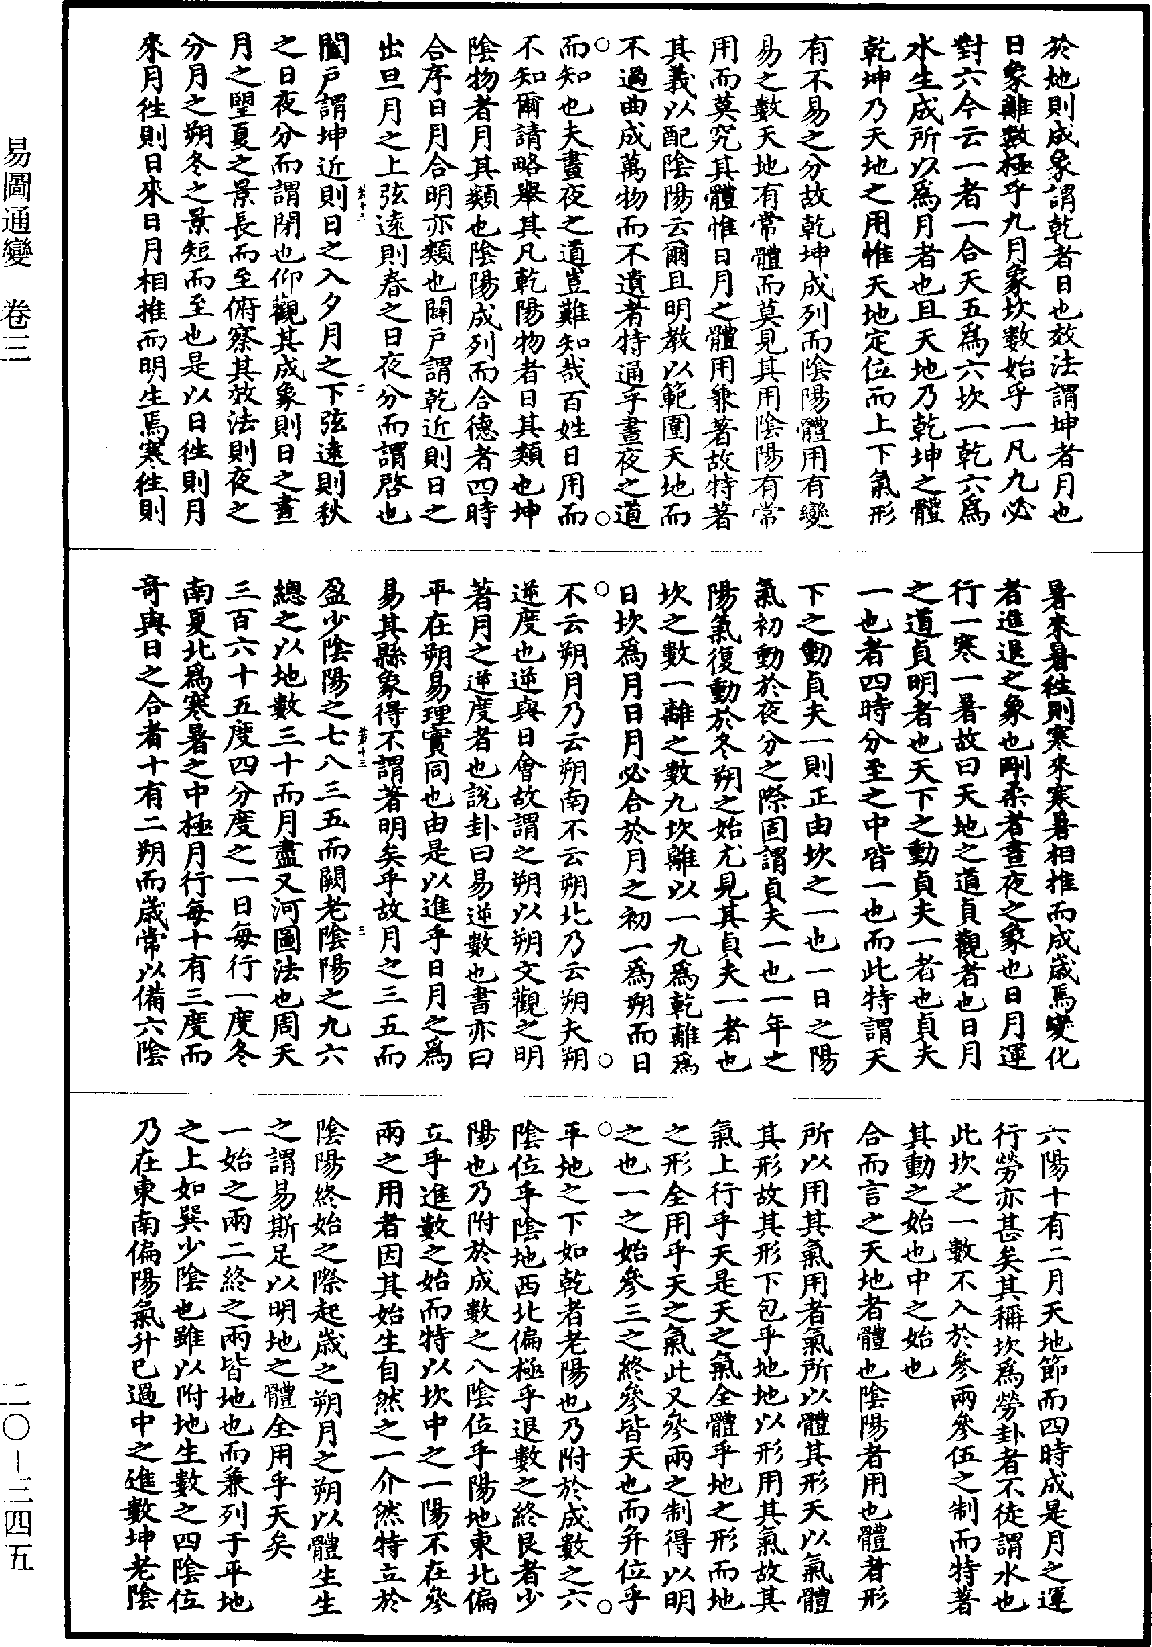 易圖通變　卷三
二〇－三四五
於地則成象謂乾者日也效法謂坤者月也
日象離數極乎九月象坎數始乎一凡九必
對六今云一者一合天五爲六坎一乾六爲
水生成所以爲月者也且天地乃乾坤之體
乾坤乃天地之用惟天地定位而上下氣形
有不易之分故乾坤成列而陰陽體用有變
易之數天地有常體而莫見其用陰陽有常
用而莫究其體惟日月之體用兼著故特著
其義以配陰陽云爾且明教以範圍天地而
不過曲成萬物而不遺者特通乎晝夜之道
而知也夫晝夜之道豈難知哉百姓日用而
不知爾請略舉其凡乾陽物者日其類也坤
陰物者月其類也陰陽成列而合德者四時
合序日月合明亦類也闢戶謂乾近則日之
出旦月之上弦遠則春之日夜分而謂啓也
闔戶謂坤近則日之入夕月之下弦遠則秋
之日夜分而謂閉也仰觀其成象則日之晝
月之望夏之景長而至俯察其效法則夜之
分月之朔冬之景短而至也是以日徃則月
來月徃則日來日月相推而明生焉寒徃則
暑來暑徃則寒來寒暑相推而成歲焉變化
者進退之象也剛柔者晝夜之象也日月運
行一寒一暑故曰天地之道貞觀者也日月
之道貞明者也天下之動貞夫一者也貞夫
一也者四時分至之中皆一也而此特謂天
下之動貞夫一則正由坎之一也一日之陽
氣初動於夜分之際固謂貞夫一也一年之
陽氣復動於冬朔之始尤見其貞夫一者也
坎之數一離之數九坎離以一九爲乾離爲
日坎爲月日月必合於月之初一爲朔而日
不云朔月乃云朔南不云朔北乃云朔夫朔
逆度也逆與日會故謂之朔以朔文觀之明
著月之逆度者也說卦曰易逆數也書亦曰
平在朔易理實同也由是以進乎日月之爲
易其縣象得不謂著明矣乎故月之三五而
盈少陰陽之七八三五而闕老陰陽之九六
總之以地數三十而月盡又河圖法也周天
三百六十五度四分度之一日每行一度冬
南夏北爲寒暑之中極月行每十有三度而
奇與日之合者十有二朔而歲常以備六陰
六陽十有二月天地節而四時成是月之運
行勞亦甚矣其稱坎爲勞卦者不徒謂水也
此坎之一數不入於參兩參伍之制而特著
其動之始也中之始也
合而言之天地者體也陰陽者用也體者形
所以用其氣用者氣所以體其形天以氣體
其形故其形下包乎地地以形用其氣故其
氣上行乎天是天之氣全體乎地之形而地
之形全用乎天之氣此又參兩之制得以明
之也一之始參三之終參皆天也而弁位乎
平地之下如乾者老陽也乃附於成數之六
陰位乎陰地西北偏極乎退數之終艮者少
陽也乃附於成數之八陰位乎陽地東北偏
立乎進數之始而特以坎中之一陽不在參
兩之用者因其始生自然之一介然特立於
陰陽終始之際起歲之朔月之朔以體生生
之謂易斯足以明地之體全用乎天矣
一始之兩二終之兩皆地也而兼列于平地
之上如巽少陰也雖以附地生數之四陰位
乃在東南偏陽氣升已過中之進數坤老陰